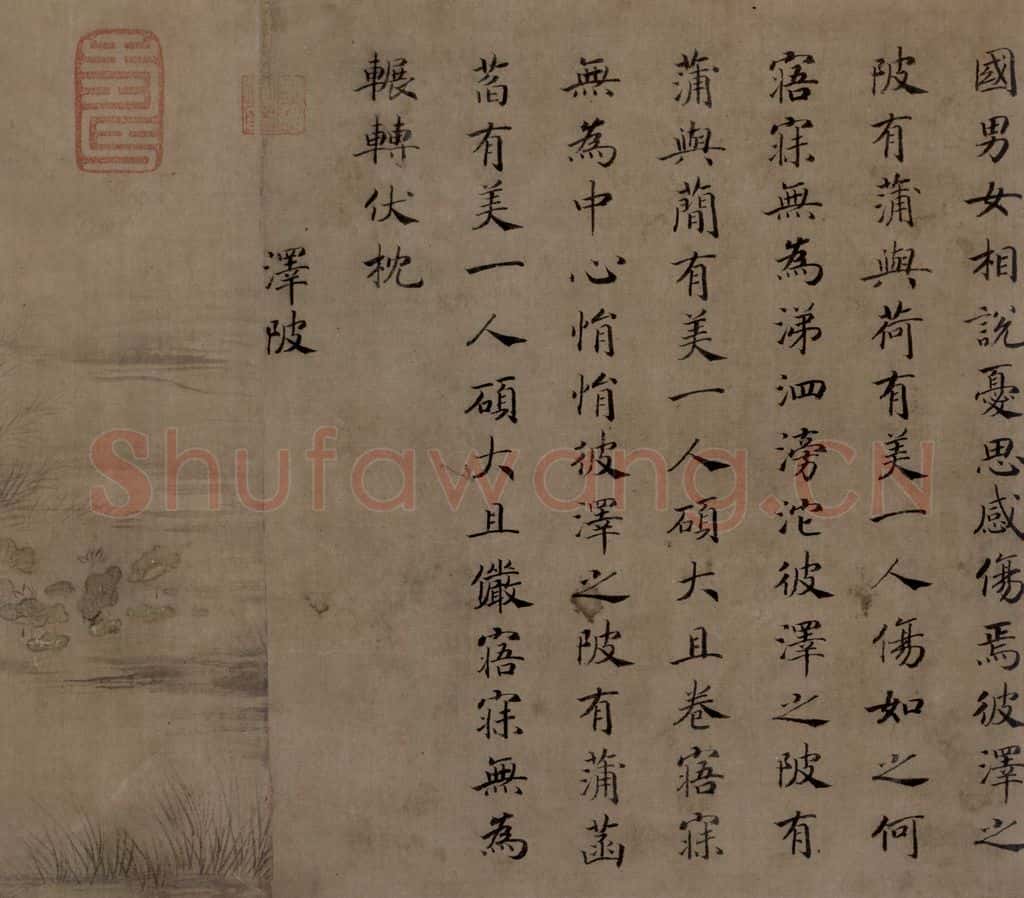 國男女相說憂思感傷焉彼澤之
陂有蒲與荷有美一人傷如之何
寤寐無為涕泗滂沱彼澤之陂有
蒲與蕳有美一人碩大且卷寤寐
無為中心悁悁彼澤之陂有蒲菡
萏有美一人碩大且儼寤寐無為
輾轉伏枕
澤陂
Shufawang.CN